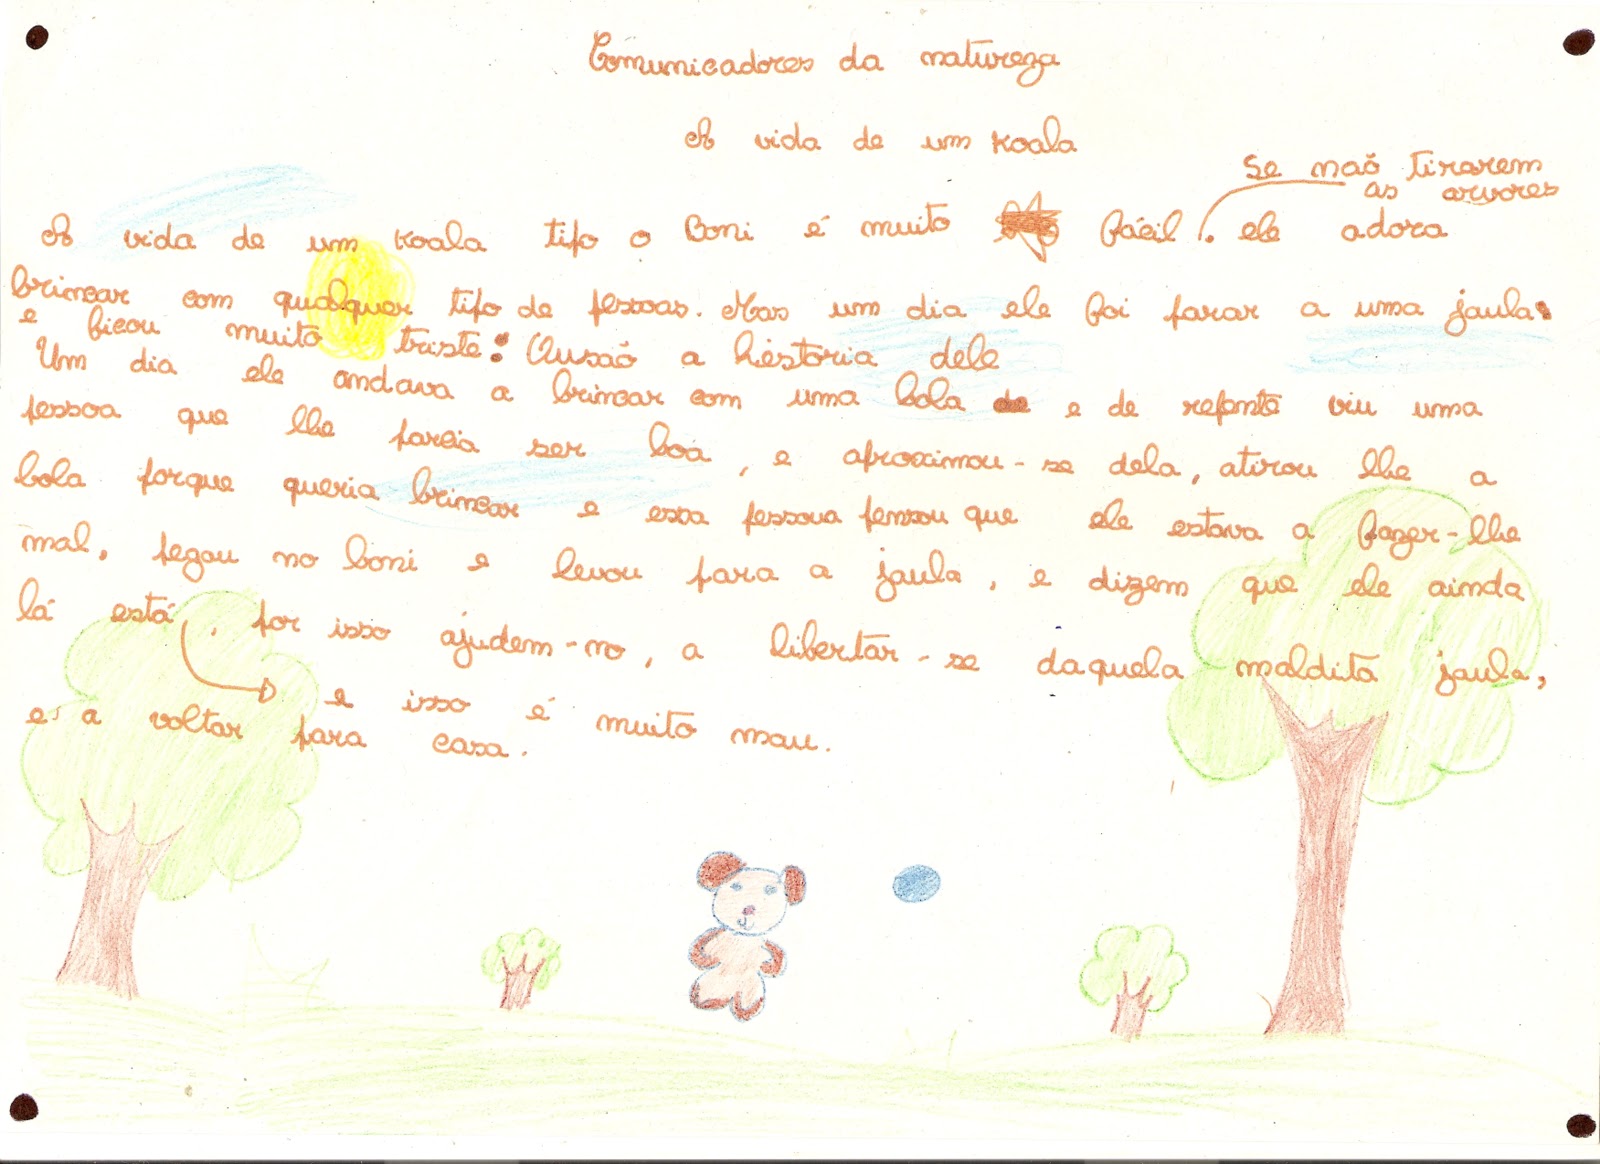 Comunicadores da natureza
A vida de um koala
Se naõ tirarem
as arvores
A vida de um koala tipo o Boni é muito fácil. ele adora
brincar com qualquer tipo de pessoas. Mas um dia ele foi parar a uma jaula.
e ficou muito triste: Ousaõ a história dele
Um dia ele andava a brincar com uma bola e de repente viu uma
pessoa que lhe parcia ser boa, e aproximou-se dela, atirou lhe a
bola porque queria brincar e essa pessoua pensou que ele estava a fazer-lhe
mal, pegou no boni e levou para a jaula, e dizem que ele ainda
lá está. por isso ajudem-no, a libertar-se daquela maldita jaula,
e isso é muito mau.
e a voltar para casa.